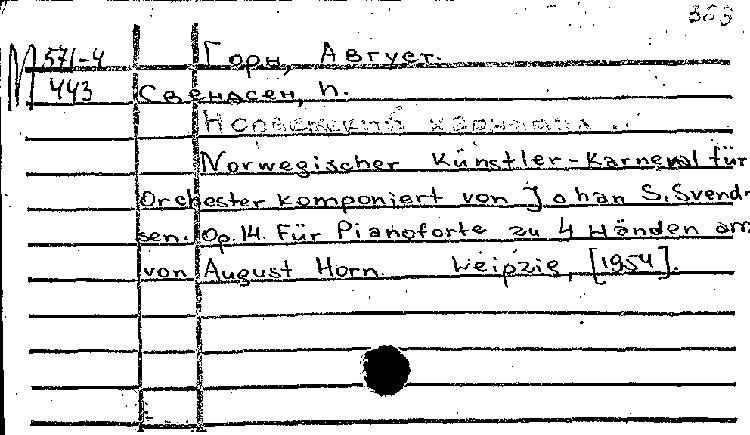 363
М 571-4 Горн, Август.
443 Свендсен, h.
Норвежский карнавал ...
Norwegischer Künstler-Karneval für
Orchester komponiert von Johan S. Svend-
sen. Op. 14. Für Pianoforte zu 4 Händen arr.
von August Horn. Leipzig, [1954].